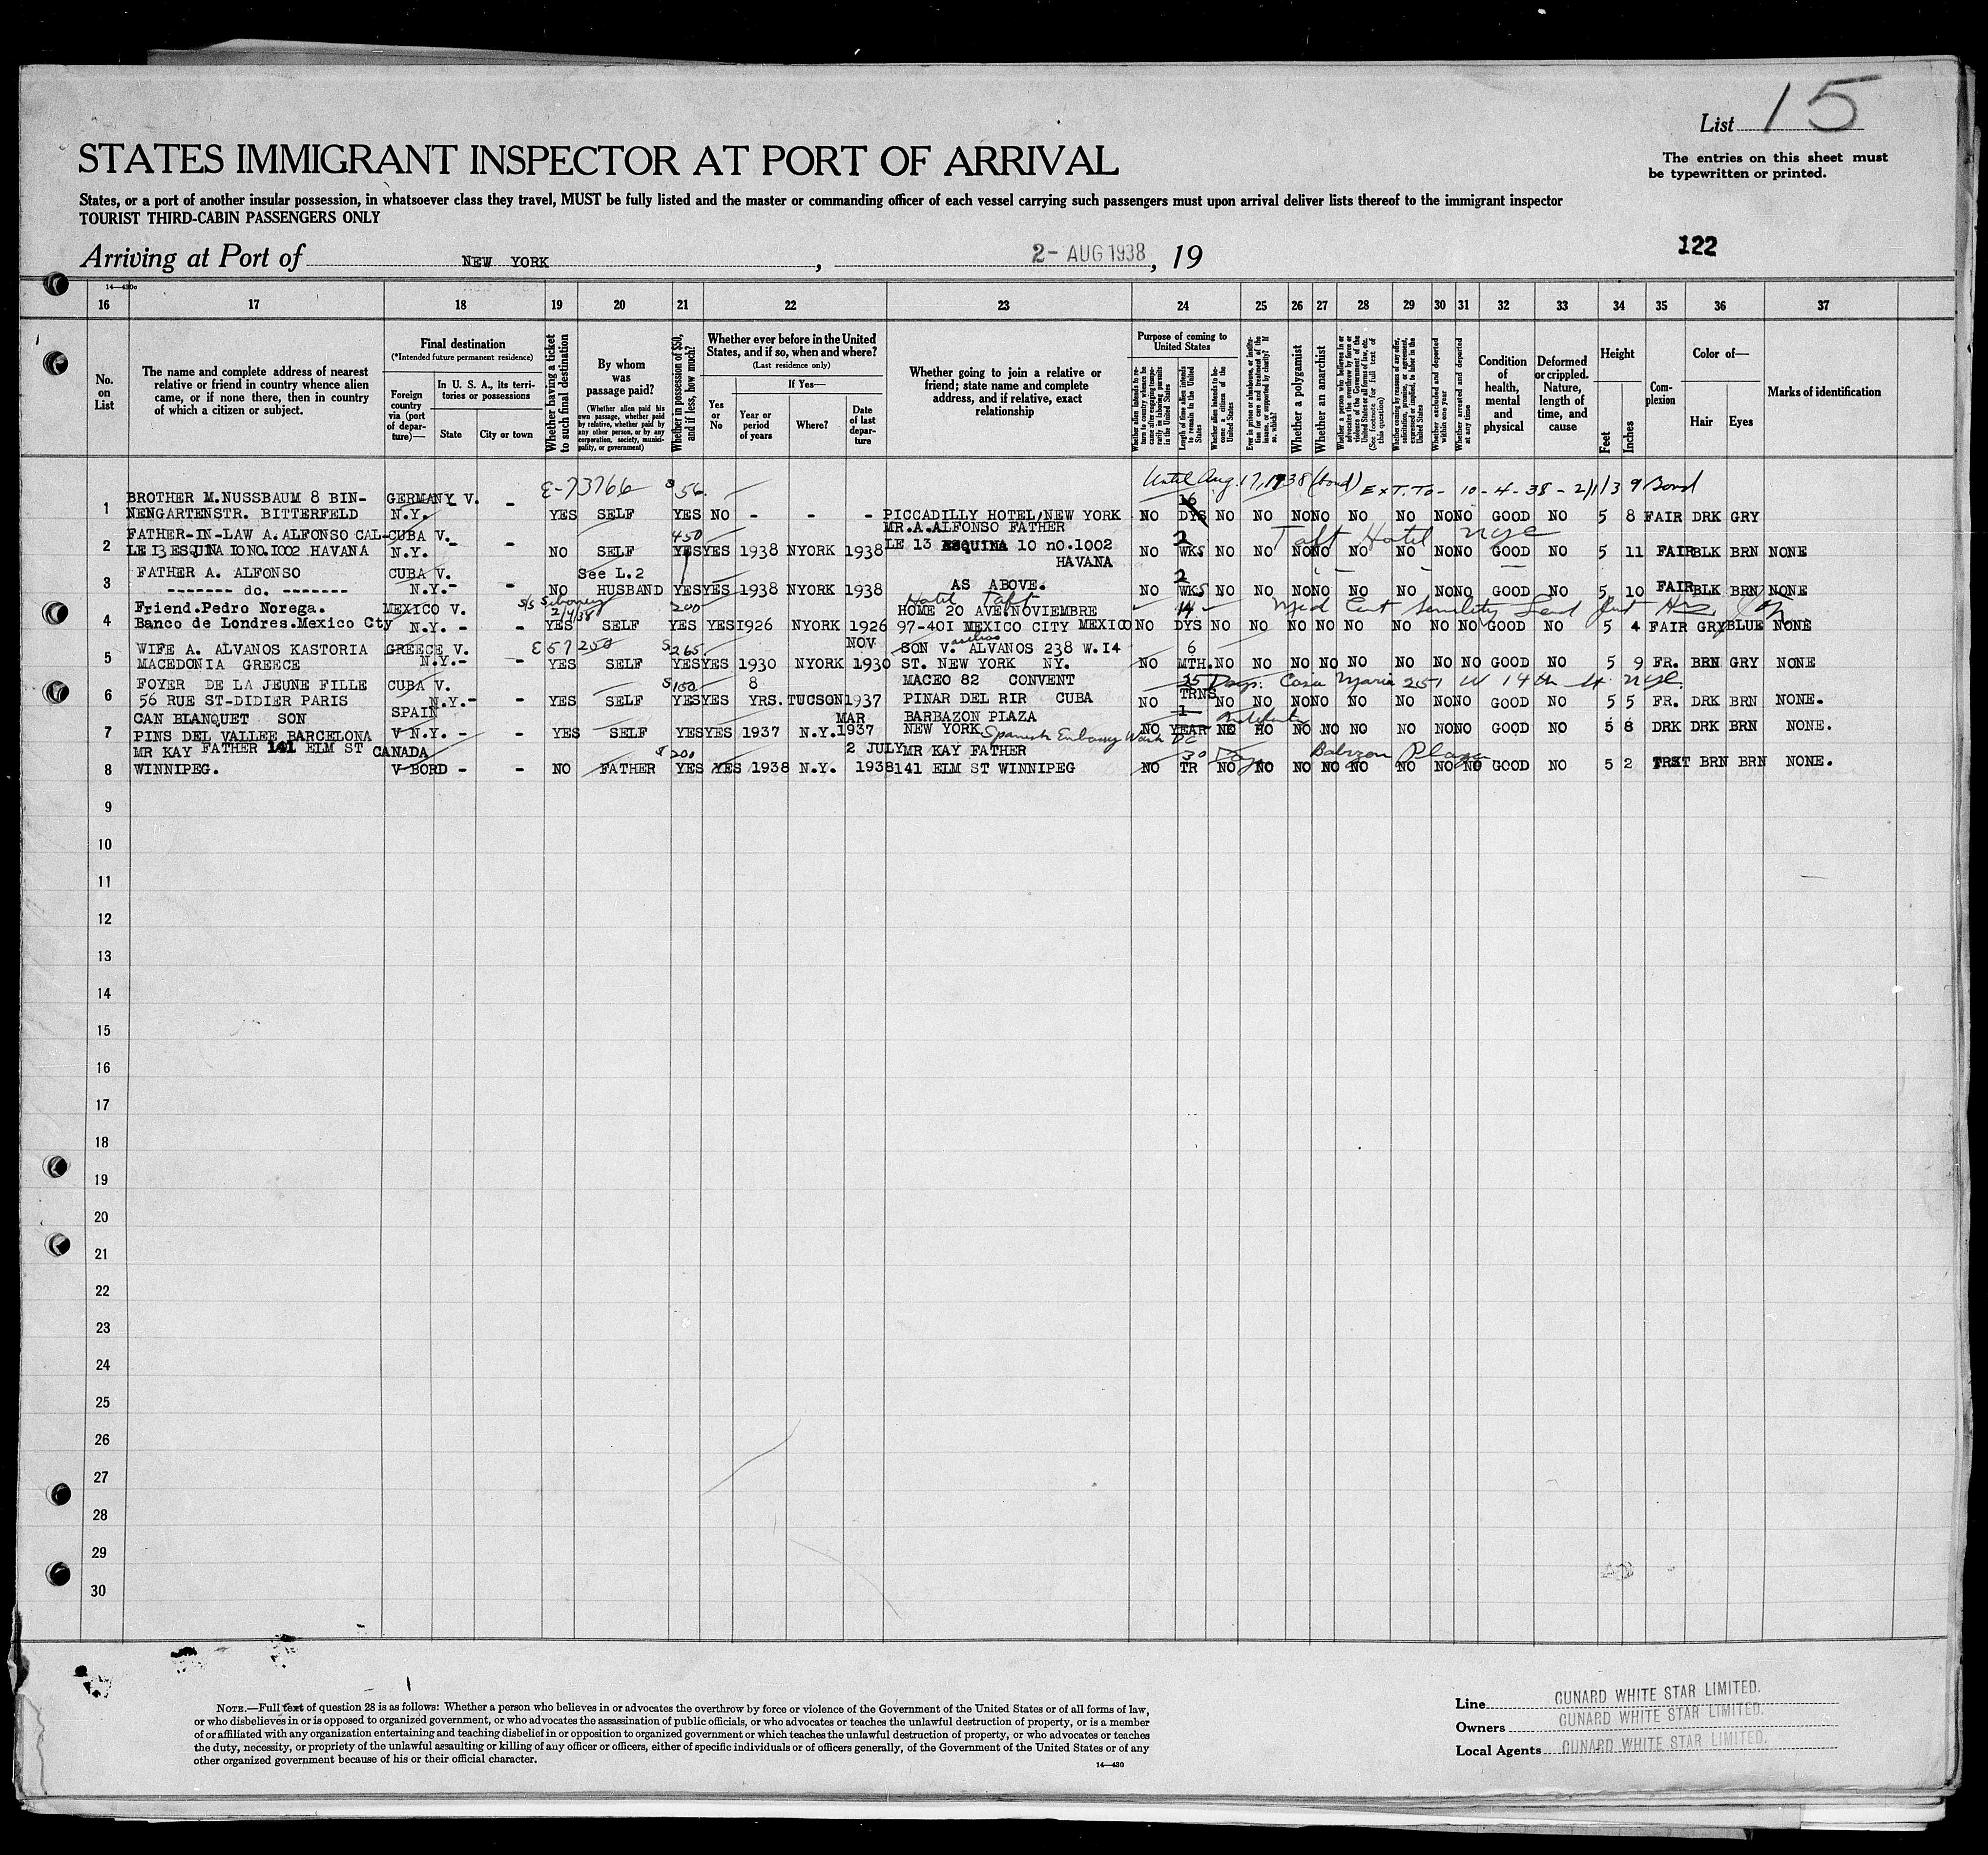 List 15
STATES IMMIGRANT INSPECTOR AT PORT OF ARRIVAL
The entries on this sheet must
be typewritten or printed.
States, or a port of another insular possession, in whatsoever class they travel, MUST be fully listed and the master or commanding officer of each vessel carrying such passengers must upon arrival deliver lists thereof to the immigrant inspector
TOURIST THIRD-CABIN PASSENGERS ONLY
Arriving at Port of NEW YORK, 2- AUG 1938, 19
122
14—430c
16 17 18 19 20 21 22 23 24 25 26 27 28 29 30 31 32 33 34 35 36 37
No. on List
The name and complete address of nearest
relative or friend in country whence alien
came, or if none there, then in country
of which a citizen or subject.
Final destination
(*Intended future permanent residence)
Foreign country via (port of departure)—
In U. S. A., its territories or possessions
State
City or town
Whether having a ticket to such final destination
By whom was passage paid?
(Whether alien paid his own passage, whether paid by relative, whether paid by any other person, or by any corporation, society, municipality, or government)
Whether in possession of $50, and if less, how much?
Whether ever before in the United States, and if so, when and where?
(Last residence only)
Yes or No
If Yes—
Year or period of years
Where?
Date of last departure
Whether going to join a relative or
friend; state name and complete
address, and if relative, exact
relationship
Purpose of coming to United States
Whether alien intends to return to country whence he came after engaging temporarily in laboring pursuits in the United States
Length of time alien intends to remain in the United States
Whether alien intends to become a citizen of the United States
Ever in prison or almshouse, or institution for care and treatment of the insane, or supported by charity? If so, which?
Whether a polygamist
Whether an anarchist
Whether a person who believes in or advocates the overthrow by force or violence of the Government of the United States or all forms of law, etc. (See footnote for full text of this question)
Whether coming by reasons of any offer, solicitation, promise, or agreement, expressed or implied, to labor in the United States
Whether excluded and deported within one year
Whether arrested and deported at any time
Condition of health, mental and physical
Deformed or crippled. Nature, length of time, and cause
Height
Feet
Inches
Complexion
Color of—
Hair
Eyes
Marks of identification
E-73766 $56. Until Aug. 17, 1938 (bond) EXT. To- 10-4-38-2/1/39 Bond
1 BROTHER M.NUSSBAUM 8 BIN- GERMANY V. 16
NENGARTENSTR. BITTERFELD N.Y. - - YES SELF YES NO - - - PICCADILLY HOTEL, NEW YORK NO DYS NO NO NO NO NO NO NO NO GOOD NO 5 8 FAIR DRK GRY
2 FATHER-IN-LAW A.ALFONSO CAL- CUBA V. 450 MR.A.ALFONSO FATHER 2 Taft Hotel NYC
LE 13 ESQUINA 10 NO.1002 HAVANA N.Y. - - NO SELF YES YES 1938 NYORK 1938 LE 13 ESQUINA 10 nO.1002 NO WKS NO NO NO NO NO NO NO NO GOOD NO 5 11 FAIR BLK BRN NONE
HAVANA
3 FATHER A. ALFONSO CUBA V. See L.2 2
------- do. ------- N.Y.- - NO HUSBAND YES YES 1938 NYORK 1938 AS ABOVE. NO WKS NO NO NO NO NO NO NO NO GOOD NO 5 10 FAIR BLK BRN NONE
S/S Siboney Hotel Taft
4 Friend.Pedro Norega. MEXICO V. 2/4/38 200 HOME 20 AVE NOVIEMBRE 14
Banco de Londres.Mexico Cty N.Y. - - YES SELF YES YES 1926 NYORK 1926 97-401 MEXICO CITY MEXICO NO DYS NO NO NO NO NO NO NO NO GOOD NO 5 4 FAIR GRY BLUE NONE
5 WIFE A. ALVANOS KASTORIA GREECE V. E 57250 $265. NOV SON V. ALVANOS 238 W.14 6
MACEDONIA GREECE N.Y.- - YES SELF YES YES 1930 NYORK 1930 ST. NEW YORK NY. NO MTH. NO NO NO NO NO NO NO NO GOOD NO 5 9 FR. BRN GRY NONE
6 FOYER DE LA JEUNE FILLE CUBA V. $150 8 MACEO 82 CONVENT 25 Days: Casa Maria 251 W 14th St NYC.
56 RUE ST-DIDIER PARIS N.Y.- - YES SELF YES YES YRS. TUCSON 1937 PINAR DEL RIR CUBA NO TRNS NO NO NO NO NO NO NO NO GOOD NO 5 5 FR. DRK BRN NONE.
7 CAN BLANQUET SON SPAIN MAR BARBAZON PLAZA 1
PINS DEL VALLEE BARCELONA V N.Y. - - YES SELF YES YES 1937 N.Y. 1937 NEW YORK Spanish Embassy Wash DC NO YEAR NO NO NO NO NO NO NO NO GOOD NO 5 8 DRK DRK BRN NONE.
8 MR KAY FATHER 141 ELM ST CANADA $200 2 JULY MR KAY FATHER 30 Days
WINNIPEG. V BORD - - NO FATHER YES YES 1938 N.Y. 1938 141 ELM ST WINNIPEG NO TR NO NO NO NO NO NO NO NO GOOD NO 5 2 BRN BRN NONE.
9
10
11
12
13
14
15
16
17
18
19
20
21
22
23
24
25
26
27
28
29
30
NOTE.—Full text of question 28 is as follows: Whether a person who believes in or advocates the overthrow by force or violence of the Government of the United States or of all forms of law,
or who disbelieves in or is opposed to organized government, or who advocates the assassination of public officials, or who advocates or teaches the unlawful destruction of property, or is a member
of or affiliated with any organization entertaining and teaching disbelief in or opposition to organized government or which teaches the unlawful destruction of property, or who advocates or teaches
the duty, necessity, or propriety of the unlawful assaulting or killing of any officer or officers, either of specific individuals or of officers generally, of the Government of the United States or of any
other organized government because of his or their official character.
14—430
Line CUNARD WHITE STAR LIMITED.
Owners CUNARD WHITE STAR LIMITED.
Local Agents CUNARD WHITE STAR LIMITED.